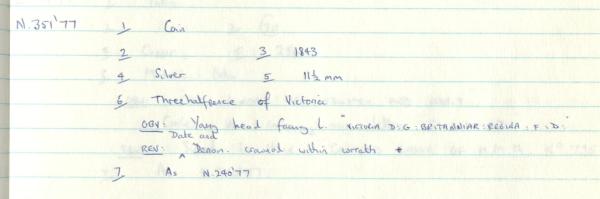 N.351'77 1 Coin
2 3 1843
4 Silver 5 11½ mm
6 Threehalfpence of Victoria
OBV: Young head facing l. "VICTORIA D:G: BRITANNIAR: REGINA: F:D:"
Date and
REV: ^ Denom. crowned within wreath
7 As N.240'77